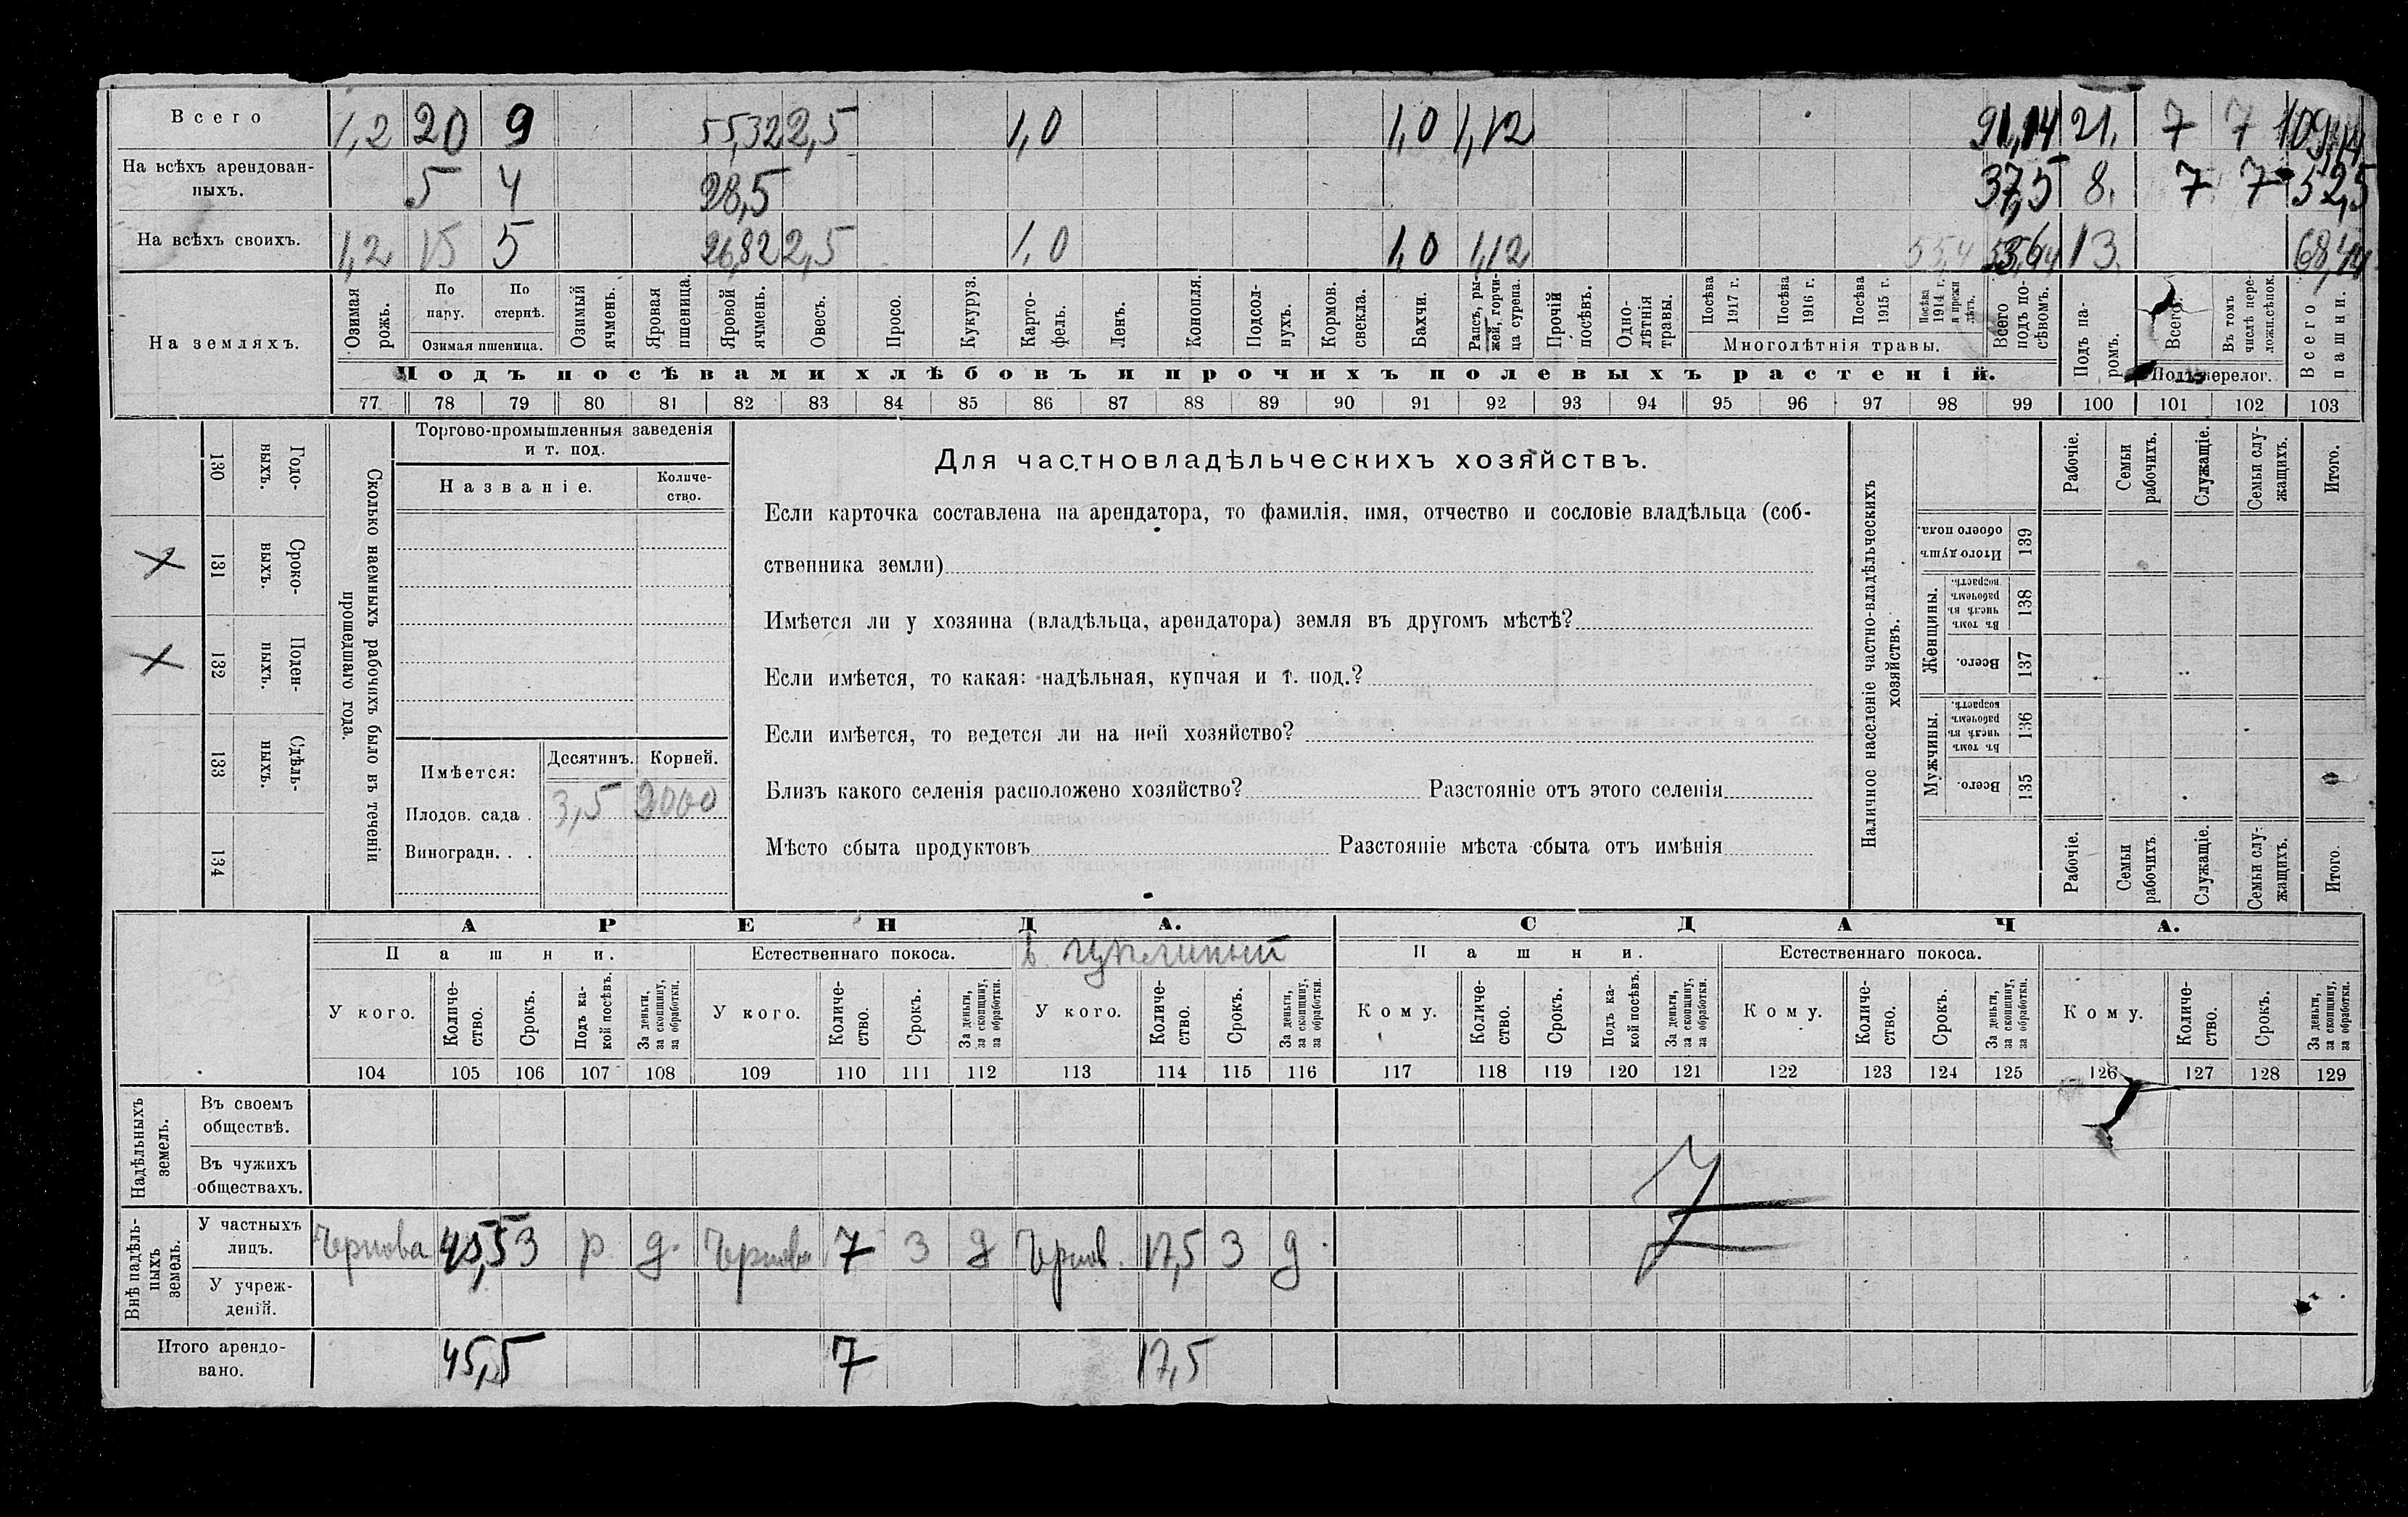 Всего 1,2 20 9 55,32 2,5 1,0 1,0 1,12 91,14 21. 7 7 109,14
На всѣхъ арендован-
ныхъ. 5 4 28,5 37,5 8. 7 7 52,5
На всѣхъ своихъ. 1,2 15 5 26,82 2,5 1,0 1,0 1,12 13.
На земляхъ.
Озимая рожь.
По пару.
По стернѣ.
Озимая пшеница.
Озимый ячмень.
Яровая пшеница.
Яровой ячмень.
Овесъ.
Просо.
Кукуруз.
Карто-
фель.
Ленъ.
Конопля.
Подсол-
нухъ.
Кормов.
свекла.
Бахчи.
Рапсъ, ры-
жей, горчи-
ца сурепа.
Прочій
посѣвъ.
Одно-
лѣтнія
травы.
Посѣва
1917 г.
Посѣва
1916 г.
Посѣва
1915 г.
Посѣва
1914 г.
и прежн
лѣтъ.
Многолѣтнія травы.
Всего
подъ по-
сѣвомъ.
Подъ па-
ромъ.
Всего.
Въ томъ
числѣ пере-
ложн.сѣнок.
Подъ перелог.
Всего
пашни.
Подъ посѣвами хлѣбовъ и прочихъ полевыхъ растеній.
77 78 79 80 81 82 83 84 85 86 87 88 89 90 91 92 93 94 95 96 97 98 99 100 101 102 103
Сколько наемныхъ рабочихъ было въ теченіи
прошедшаго года.
Годо-
выхъ.
130
Сроко-
выхъ.
131
Поден-
ныхъ.
132
Сдѣль-
ныхъ.
133
134
Торгово-промышленныя заведенія
и т. под.
Названіе.
Количе-
ство.
Имѣется: Десятинъ. Корней.
Плодов. сада . 3,5 2000
Виноградн. . .
Для частновладѣльческихъ хозяйствъ.
Если карточка составлена на арендатора, то фамилія, имя, отчество и сословіе владѣльца (соб-
ственника земли)
Имѣется ли у хозяина (владѣльца, арендатора) земля въ другомъ мѣстѣ?
Если имѣется, то какая: надѣльная, купчая и т. под.?
Если имѣется, то ведется ли на ней хозяйство?
Близъ какого селенія расположено хозяйство? Разстояніе отъ этого селенія
Мѣсто сбыта продуктовъ Разстояніе мѣста сбыта отъ имѣнія
Наличное населеніе частно-владѣльческихъ
хозяйствъ.
Рабочіе.
Семьи
рабочихъ.
Служащіе.
Семьи слу-
жащихъ.
Итого.
Итого душъ
обоего пола.
139
Женщины.
Въ томъ
числѣ въ
рабочемъ
возрастѣ.
138
Всего.
137
Мужчины.
Въ томъ
числѣ въ
рабочемъ
возрастѣ.
136
Всего.
135
Рабочіе.
Семьи
рабочихъ.
Служащіе.
Семьи слу-
жащихъ.
Итого.
АРЕНДА. СДАЧА.
Пашни. Естественнаго покоса. Пашни. Естественнаго покоса.
У кого.
Количе-
ство.
Срокъ.
Подъ ка-
кой посѣвъ.
За деньги,
за скопщину,
за обработки.
У кого.
Количе-
ство.
Срокъ.
За деньги,
за скопщину,
за обработки.
У кого.
Количе-
ство.
Срокъ.
За деньги,
за скопщину,
за обработки.
Кому.
Количе-
ство.
Срокъ.
Подъ ка-
кой посѣвъ.
За деньги,
за скопщину,
за обработки.
Кому.
Количе-
ство.
Срокъ.
За деньги,
за скопщину,
за обработки.
Кому.
Количе-
ство.
Срокъ.
За деньги,
за скопщину,
за обработки.
104 105 106 107 108 109 110 111 112 113 114 115 116 117 118 119 120 121 122 123 124 125 126 127 128 129
Надѣльныхъ
земель.
Въ своемъ
обществѣ.
Въ чужихъ
обществахъ.
Внѣ надѣль-
ныхъ
земель.
У частныхъ
лицъ. Чернова 45,5 3 р. д. Чернова 7 3 д Чернов. 17,5 3 д.
У учреж-
деній.
Итого арендо-
вано. 45,5 7 17,5